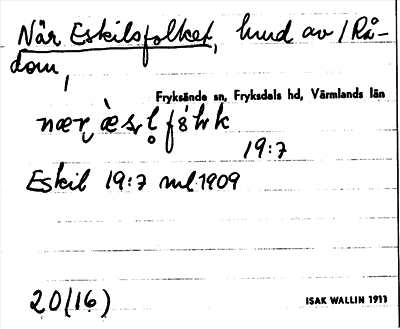 När Eskilsfolket, hmd av / Rå-
dom,
Fryksände sn, Fryksdals hd, Värmlands län
19:7
Eskil 19:7 ml. 1909
20(16)
ISAK WALLIN 1933